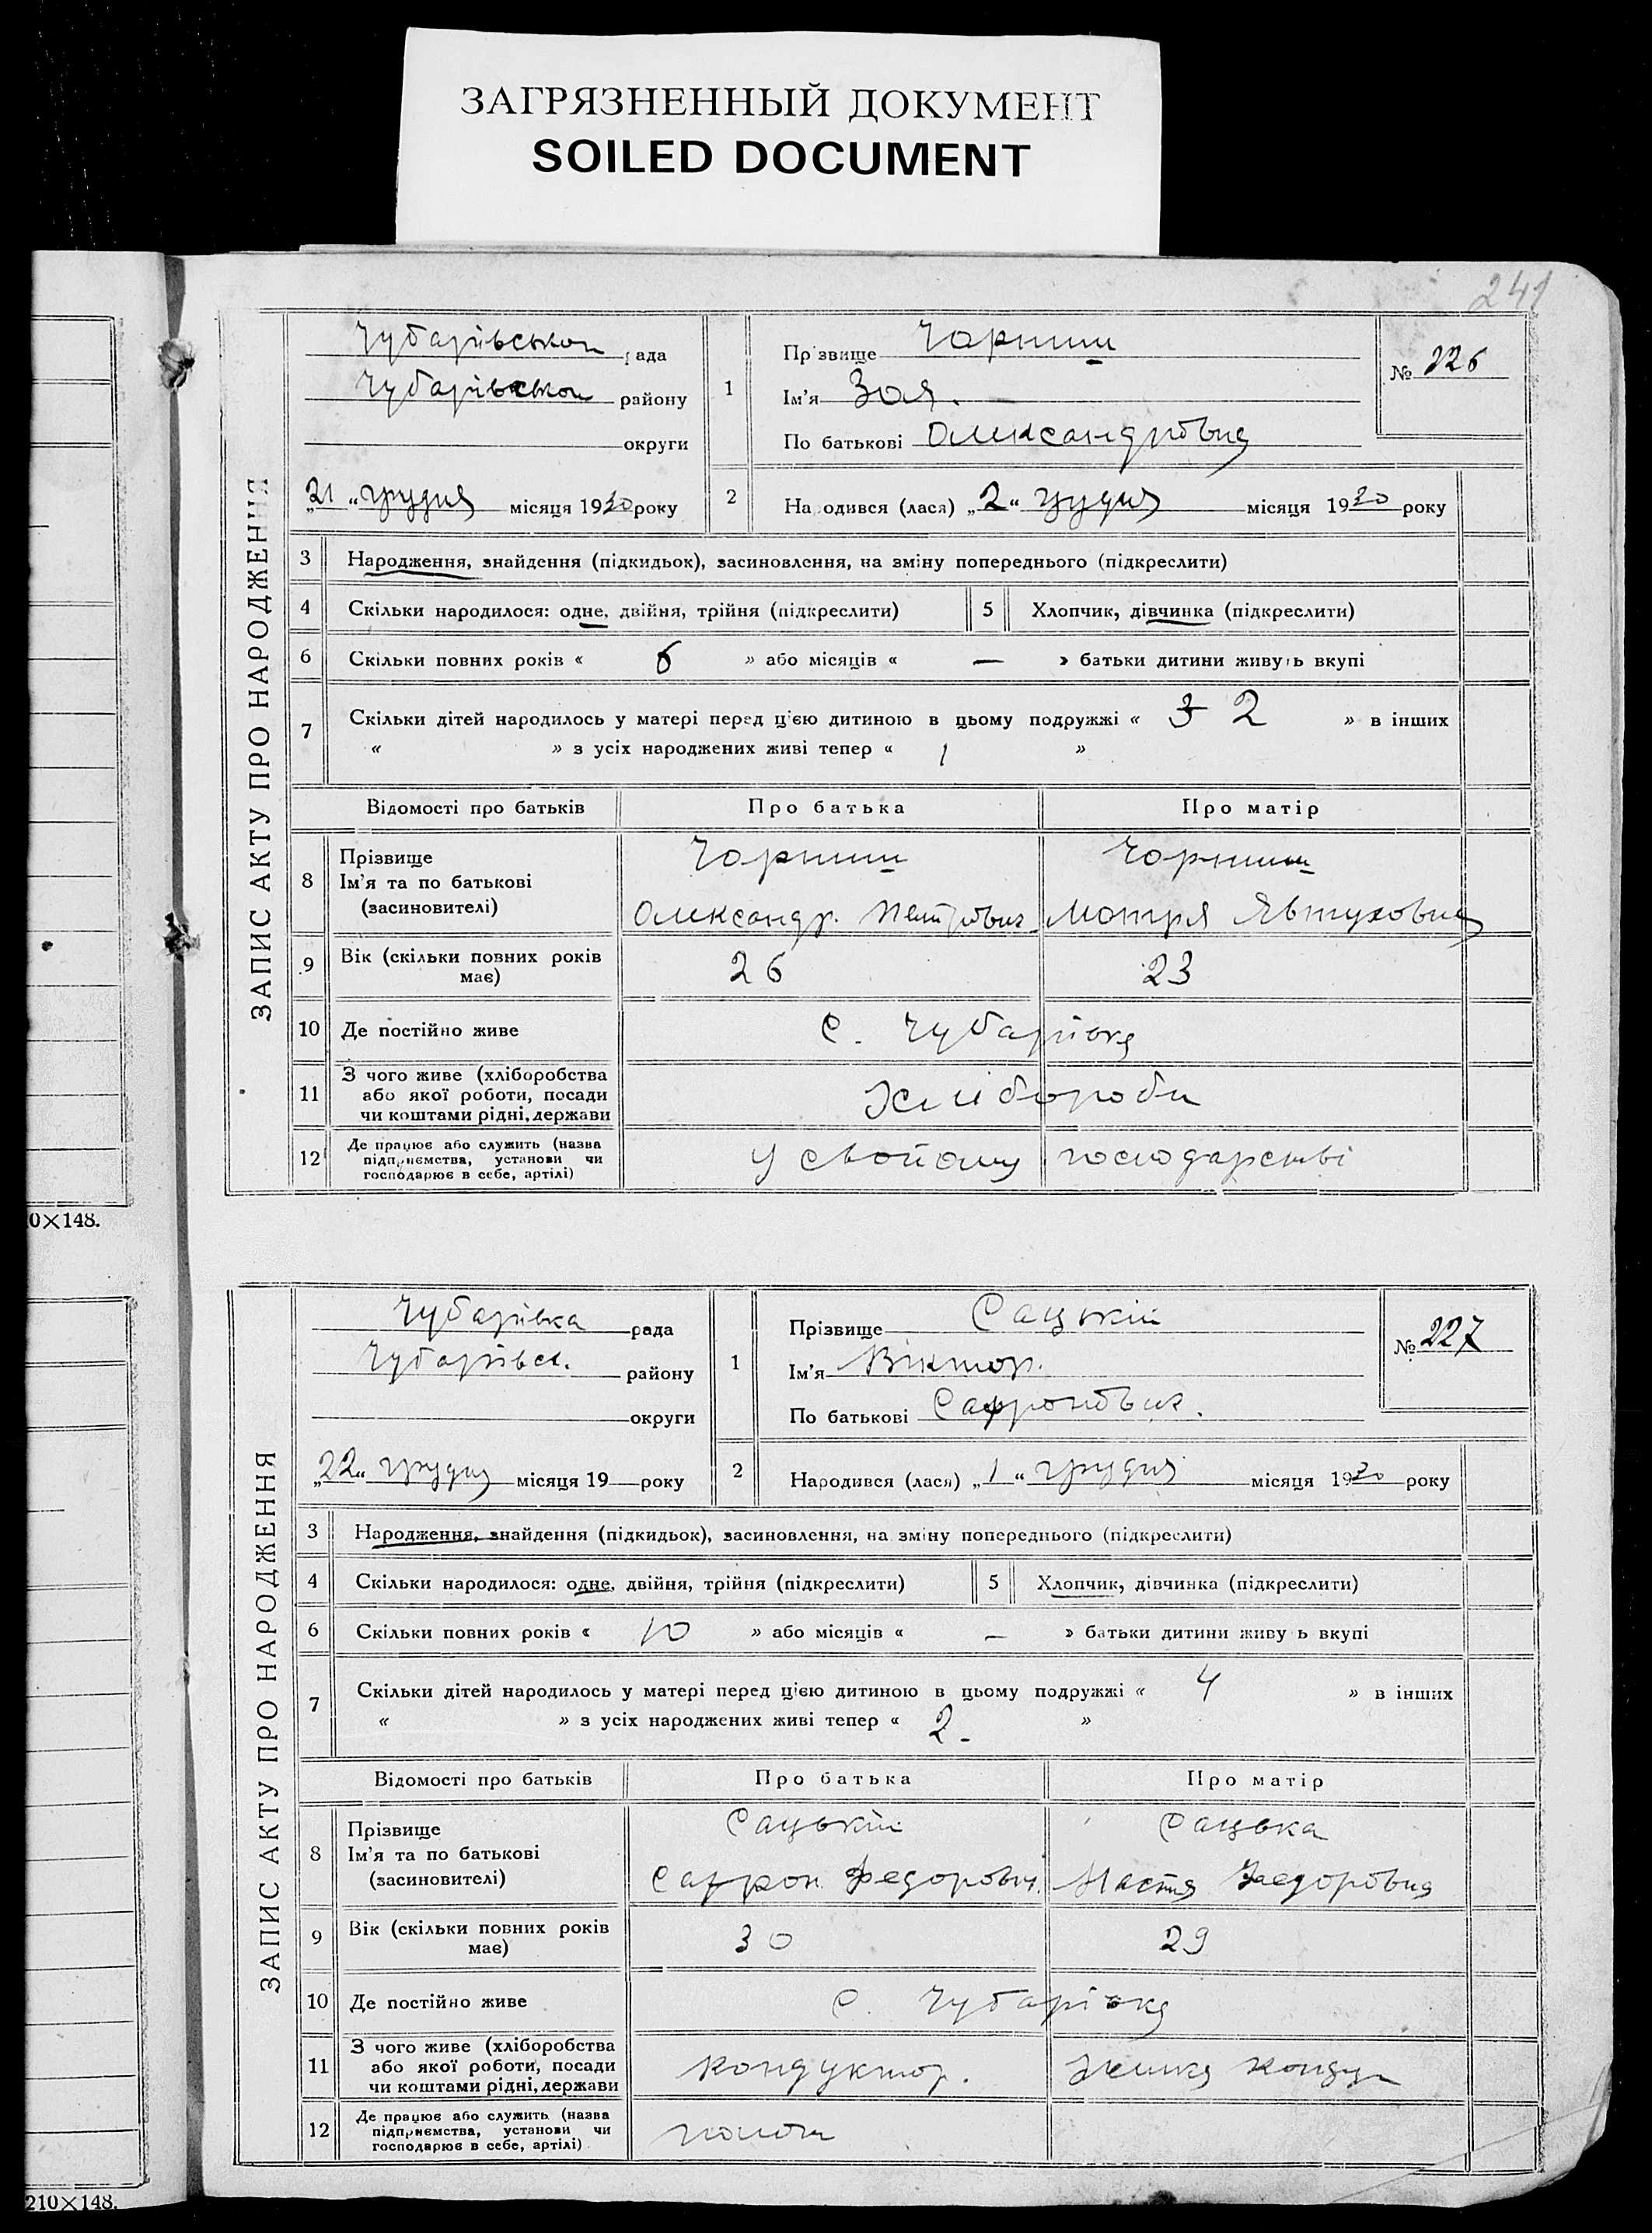 ЗАГРЯЗНЕННЫЙ ДОКУМЕНТ
SOILED DOCUMENT
241
ЗАПИС АКТУ ПРО НАРОДЖЕННЯ
Чубарівської рада
Чубарівської району
округи
„21“ грудня місяця 1930 року
1
Прізвище Чорниш
Ім'я Зоя.
По батькові Олександрівна
№ 226
2 Народився (лася) „2“ грудня місяця 1930 року
3 Народження, знайдення (підкидьок), засиновлення, на зміну попереднього (підкреслити)
4 Скільки народилося: одне, двійня, трійня (підкреслити) 5 Хлопчик, дівчинка (підкреслити)
6 Скільки повних років « 6 » або місяців « — » батьки дитини живуть вкупі
7 Скільки дітей народилось у матері перед цією дитиною в цьому подружжі « 3 2 » в інших
« » з усіх народжених живі тепер « 1 »
Відомості про батьків Про батька Про матір
8 Прізвище Чорниш Чорниш
Ім'я та по батькові
(засиновителі) Олександр. Петрович Мотря Явтуховна
9 Вік (скільки повних років має) 26 23
10 Де постійно живе с. Чубарівка
11 З чого живе (хліборобства
або якої роботи, посади
чи коштами рідні, держави Хлібороби
12 Де працює або служить (назва
підприємства, установи чи
господарює в себе, артілі) у свойому господарстві
0×148.
ЗАПИС АКТУ ПРО НАРОДЖЕННЯ
Чубарівка рада
Чубарівск. району
округи
„22“ грудня місяця 19 року
1
Прізвище Сацький
Ім'я Віктор.
По батькові Сафронович.
№ 227
2 Народився (лася) „1“ грудня місяця 1930 року
3 Народження, знайдення (підкидьок), засиновлення, на зміну попереднього (підкреслити)
4 Скільки народилося: одне, двійня, трійня (підкреслити) 5 Хлопчик, дівчинка (підкреслити)
6 Скільки повних років « 10 » або місяців « — » батьки дитини живу ь вкупі
7 Скільки дітей народилось у матері перед цією дитиною в цьому подружжі « 4 » в інших
« » з усіх народжених живі тепер « 2 »
Відомості про батьків Про батька Про матір
8 Прізвище Сацький Сацька
Ім'я та по батькові
(засиновителі) Сафрон Федорович. Настя Федоровна
9 Вік (скільки повних років має) 30 29
10 Де постійно живе с. Чубарівка
11 З чого живе (хліборобства
або якої роботи, посади
чи коштами рідні, держави кондуктор.
12 Де працює або служить (назва
підприємства, установи чи
господарює в себе, артілі)
210×148.